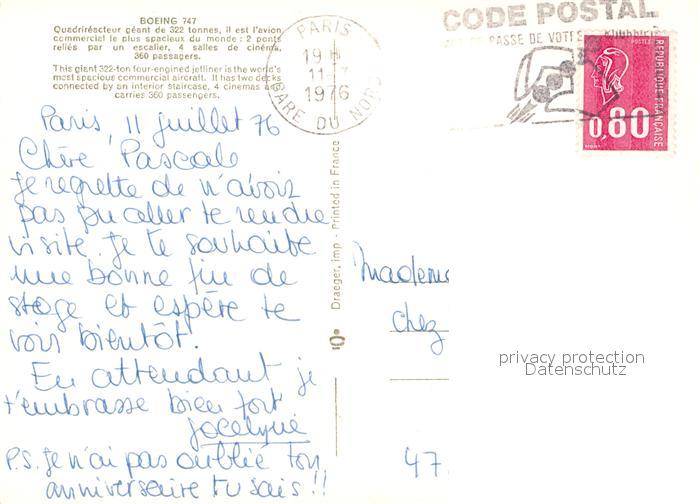 BOEING 747
Quadriréacteur géant de 322 tonnes, il est l'avion
commercial le plus spacieux du monde : 2 ponts
reliés par un escalier, 4 salles de cinéma,
360 passagers.
This giant 322-ton four-engined jetliner is the world's
most spacious commercial aircraft. It has two decks
connected by an interior staircase, 4 cinemas and
carries 360 passengers.
PARIS
11-7
1976
GARE DU NORD
CODE POSTAL
PASSE DE
POSTES
REPUBLIQUE FRANÇAISE
0,80
Paris, 11 juillet 76
Chère Pascale
Je regrette de n'avoir
pas pu aller te rendre
visite. Je te souhaite
une bonne fin de
stage et espère te
voir bientôt.
En attendant je
t'embrasse bien fort
Jocelyne
P.S. Je n'ai pas oublié ton
anniversaire tu sais !!
Draeger, imp. - Printed in France
Madem
chez
47
privacy protection
Datenschutz